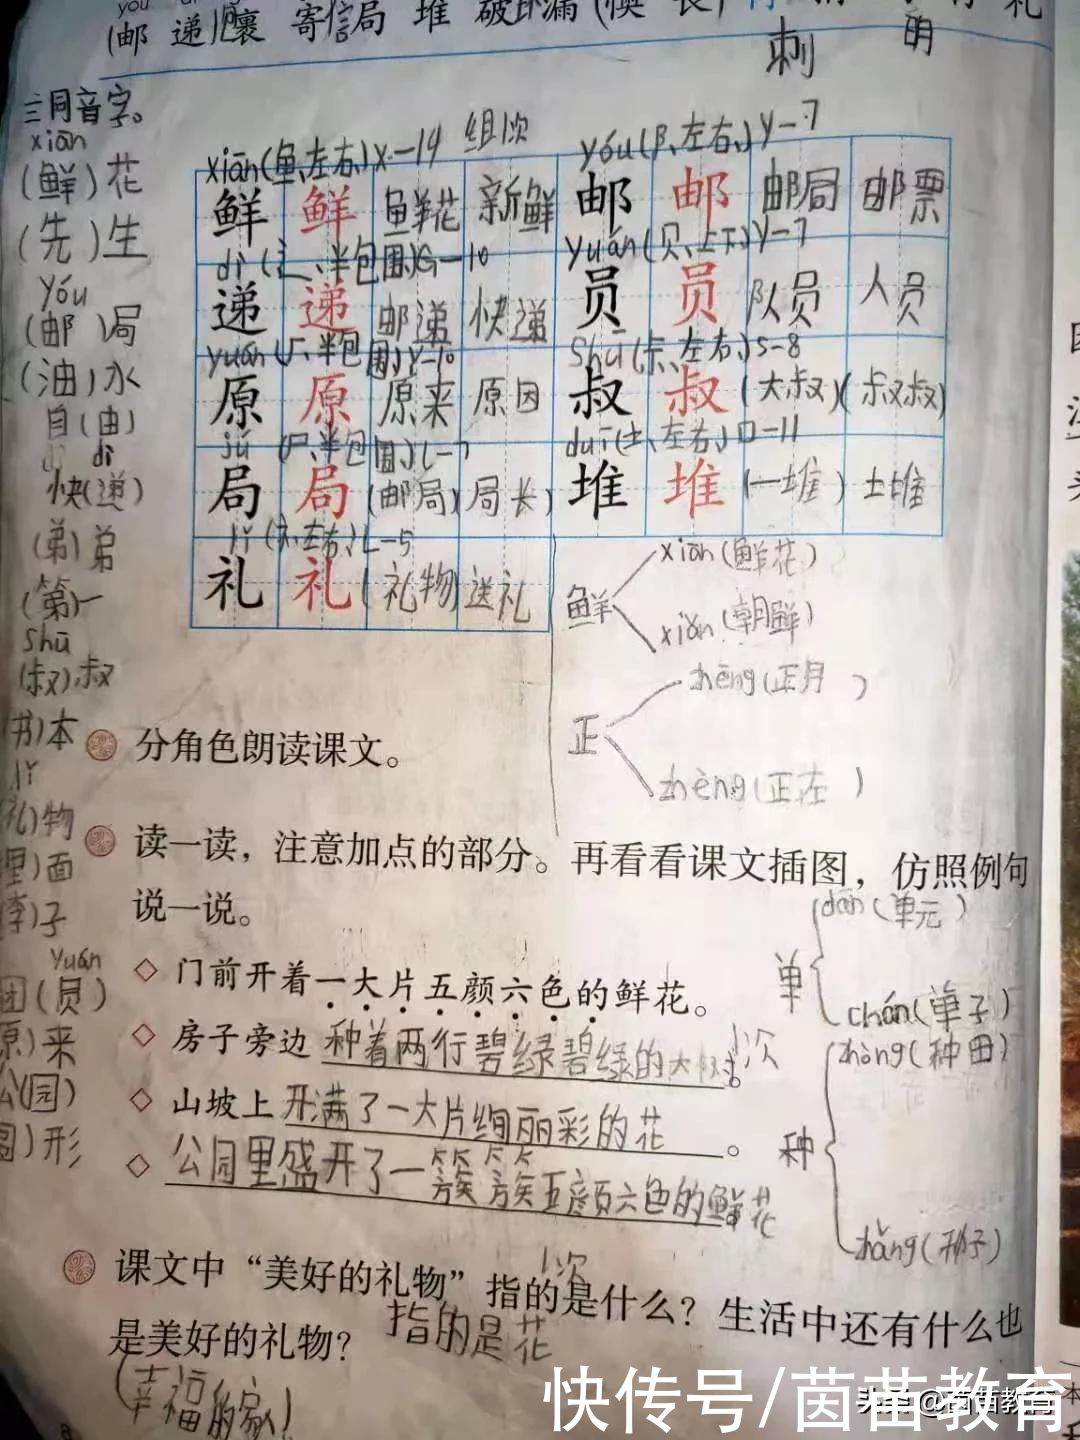 yóu
(邮 递) 寄信局 堆 破坏漏 (懊 礼
刺
三同音字。
xiān
(鲜)花
(先)生
yóu
(邮)局
(油)水
自(由)
dì
快(递)
(弟)弟
(第)一
shū
(叔)叔
书)本
lǐ
礼)物
里)面
李)子
yuán
团(员)
原)来
公(园)
圆)形
xiān(鱼、左右、)X-14 组1次
鲜 鲜 鲜花 新鲜
yóu(阝、左右、)Y-7
邮 邮 邮局 邮票
dì(辶、半包围、)G-10
递 递 邮递 快递
yuán(贝、上下、)Y-7
员 员 队员 人员
yuán(厂、半包围、)Y-10
原 原 原来 原因
shū(左右、)S-8
叔 叔 (大叔)(叔叔)
jú(尸、半包围、)L-7
局 局 (邮局)局长)
duī(土、左右、)D-11
堆 堆 (一堆)土堆
lǐ(礻、左右、)L-5
礼 礼 (礼物)送礼
鲜
xiān(鲜花)
xiǎn(朝鲜)
正
zhēng(正月)
zhèng(正在)
分角色朗读课文。
读一读，注意加点的部分。再看看课文插图，仿照例句
说一说。
门前开着一大片五颜六色的鲜花。
房子旁边种着两行碧绿碧绿的大树。 1次
山坡上开满了一大片绚丽彩的花。
公园里盛开了一簇簇五颜六色的鲜花
单
dān(单元)
chán(单子)
种
zhòng(种田)
zhǒng(种子)
课文中“美好的礼物”指的是什么？生活中还有什么也
1次
是美好的礼物？
指的是花
(幸福的家!
快传号/茵苗教育
头条@茵苗教育